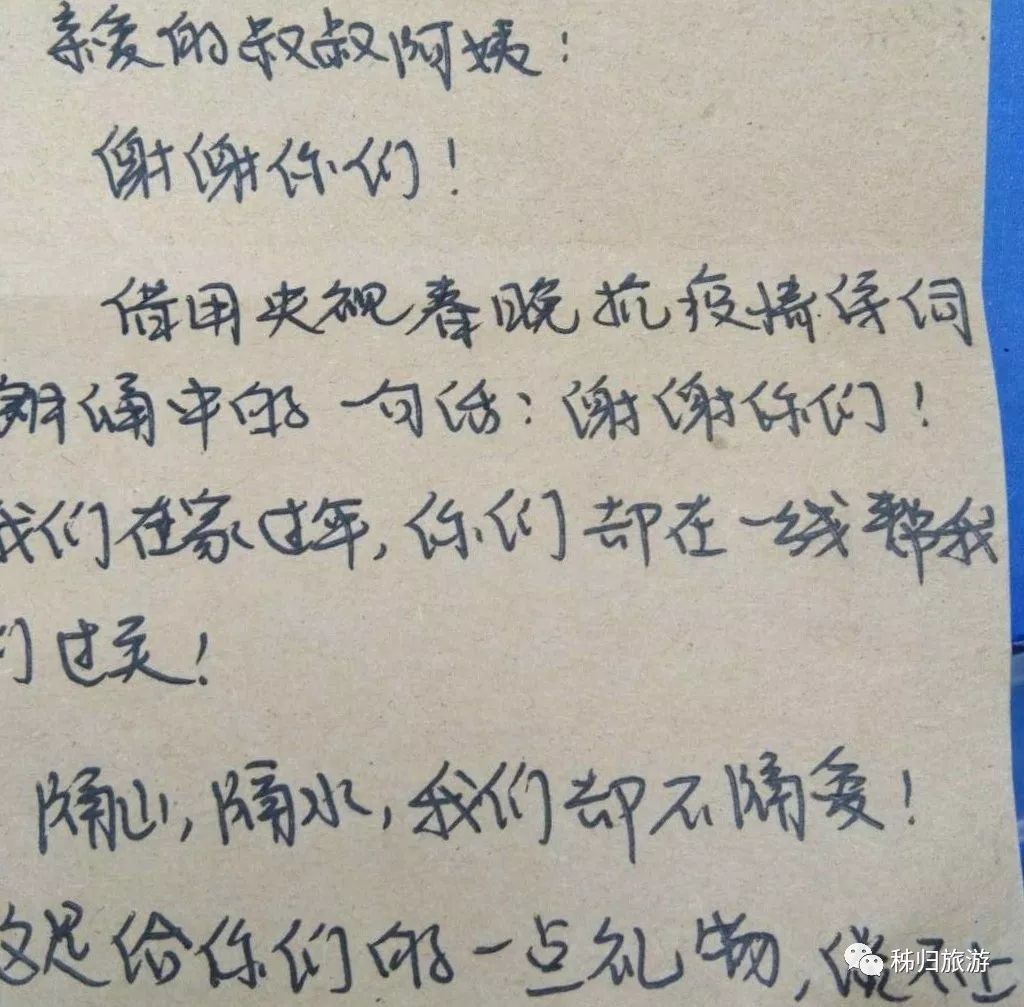 亲爱的叔叔阿姨：
谢谢你们！
借用央视春晚抗疫情景
诵中的一句话：谢谢你们！
我们在家过年，你们却在一线帮我
们过关！
隔山，隔水，我们却不隔爱！
这是给你们的一点礼物，
秭归旅游